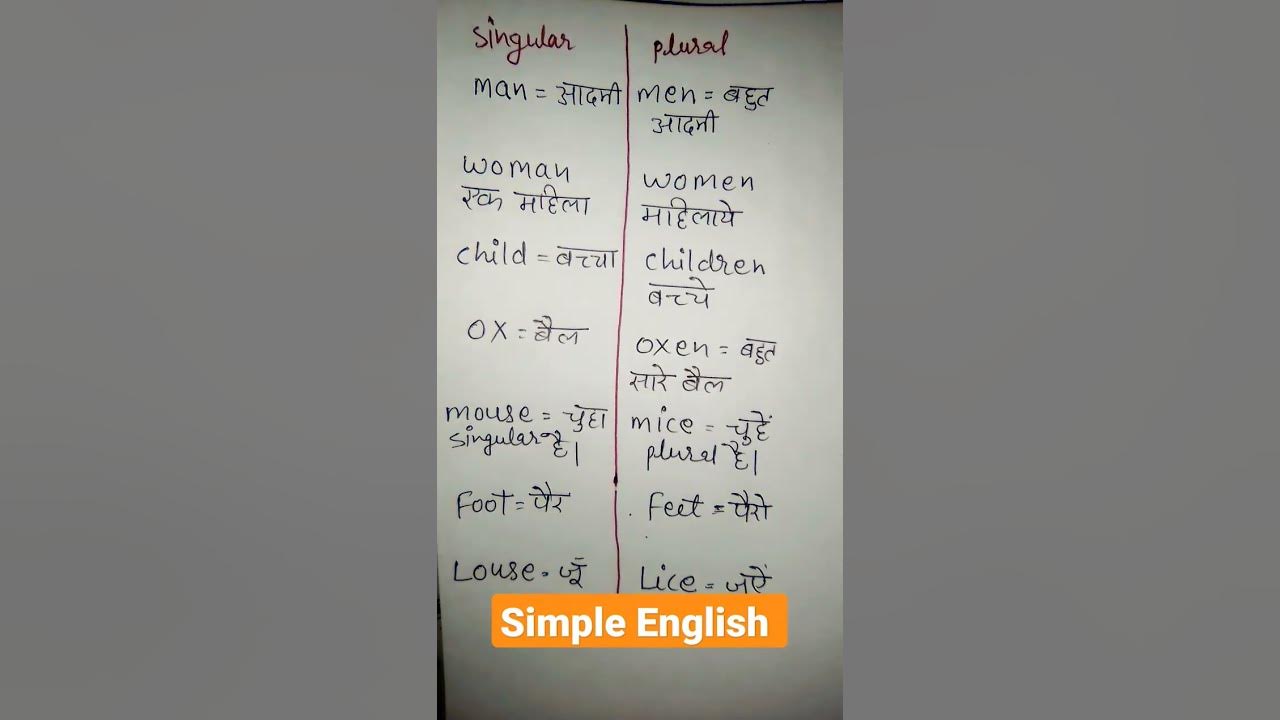 singular plural
man = आदमी men = बहुत
आदमी
woman women
एक महिला माहिलाये
child = बच्चा children
बच्चे
ox = बैल oxen = बहुत
सारे बैल
mouse = चुहा mice = चुहें
singular है। plural है।
Foot = पैर Feet = पैरो
Louse = जूँ Lice = जऐं
Simple English